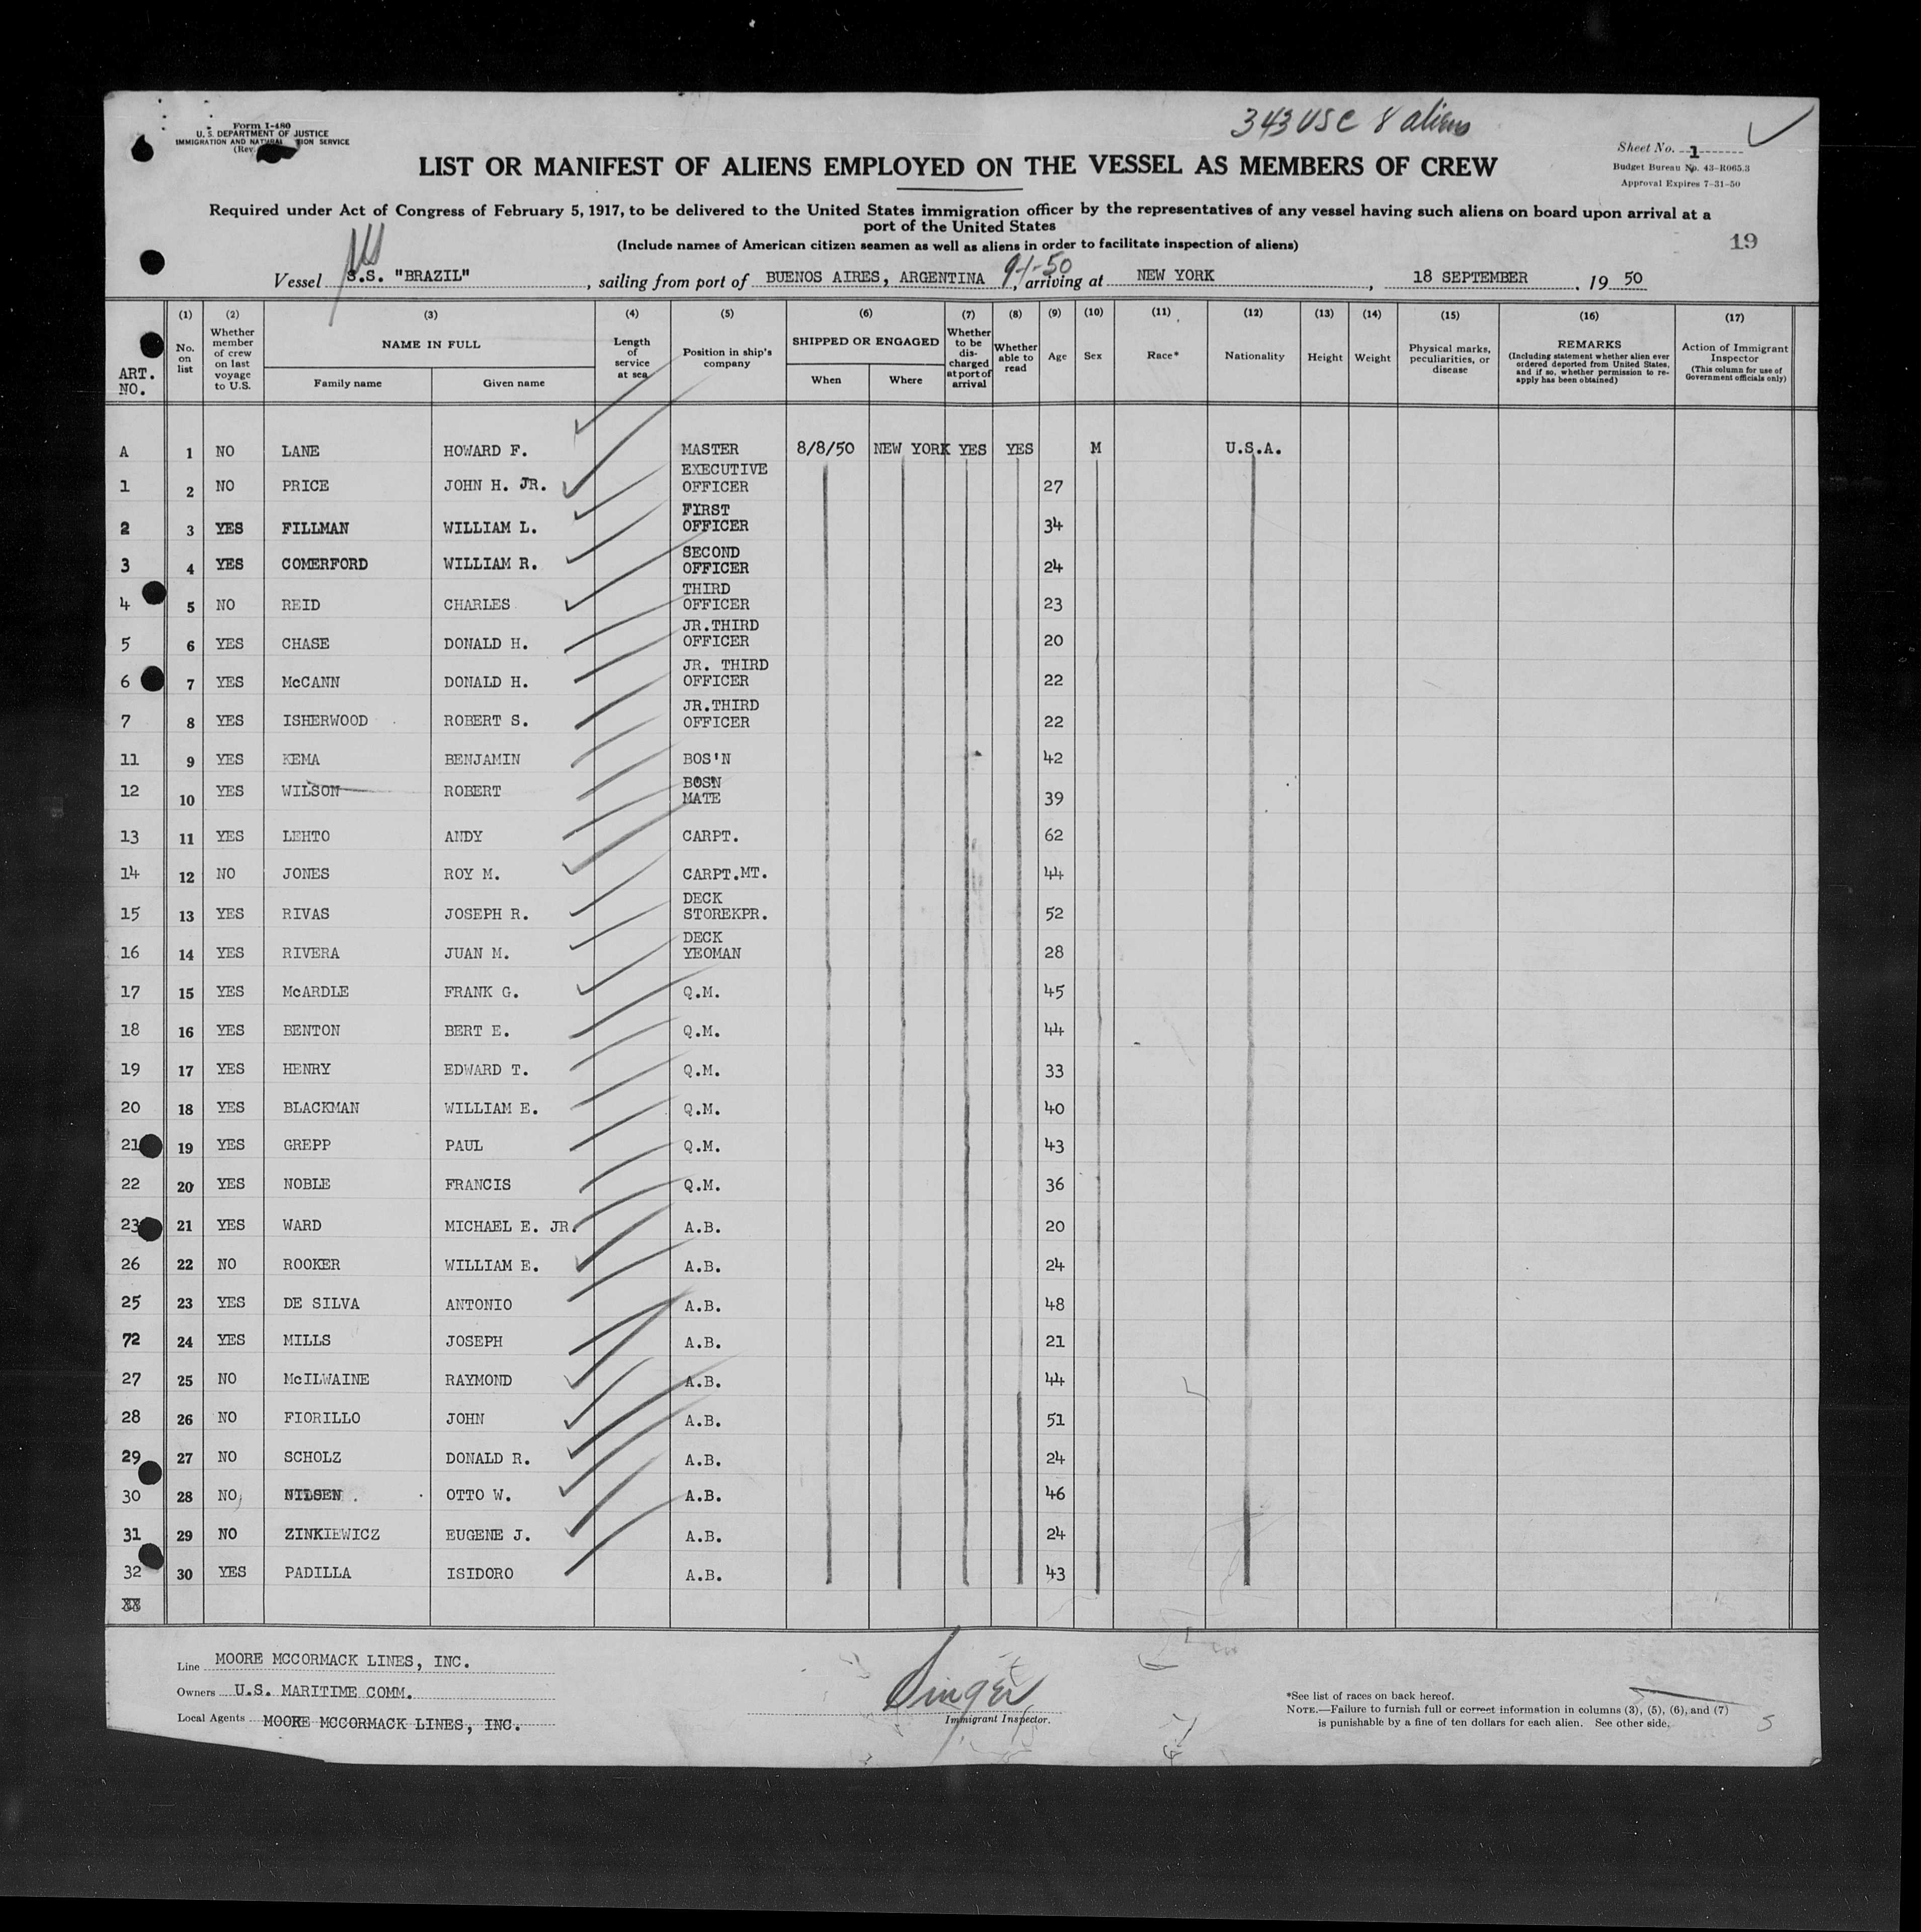 343 USC 8 aliens
Form I-480
U. S. DEPARTMENT OF JUSTICE
IMMIGRATION AND NATURALIZATION SERVICE
(Rev.
Sheet No. 1
Budget Bureau No. 43-R065.3
Approval Expires 7-31-50
LIST OR MANIFEST OF ALIENS EMPLOYED ON THE VESSEL AS MEMBERS OF CREW
Required under Act of Congress of February 5, 1917, to be delivered to the United States immigration officer by the representatives of any vessel having such aliens on board upon arrival at a
port of the United States
(Include names of American citizen seamen as well as aliens in order to facilitate inspection of aliens)
19
Vessel S.S. "BRAZIL", sailing from port of BUENOS AIRES, ARGENTINA 9-1-50, arriving at NEW YORK, 18 SEPTEMBER, 19 50
ART. NO.
(1) No. on list
(2) Whether member of crew on last voyage to U.S.
(3) NAME IN FULL
Family name
Given name
(4) Length of service at sea
(5) Position in ship's company
(6) SHIPPED OR ENGAGED
When
Where
(7) Whether to be discharged at port of arrival
(8) Whether able to read
(9) Age
(10) Sex
(11) Race*
(12) Nationality
(13) Height
(14) Weight
(15) Physical marks, peculiarities, or disease
(16) REMARKS (Including statement whether alien ever ordered deported from United States, and if so, whether permission to re-apply has been obtained)
(17) Action of Immigrant Inspector (This column for use of Government officials only)
A 1 NO LANE HOWARD F. MASTER 8/8/50 NEW YORK YES YES M U.S.A.
1 2 NO PRICE JOHN H. JR. EXECUTIVE OFFICER 27
2 3 YES FILLMAN WILLIAM L. FIRST OFFICER 34
3 4 YES COMERFORD WILLIAM R. SECOND OFFICER 24
4 5 NO REID CHARLES THIRD OFFICER 23
5 6 YES CHASE DONALD H. JR.THIRD OFFICER 20
6 7 YES McCANN DONALD H. JR. THIRD OFFICER 22
7 8 YES ISHERWOOD ROBERT S. JR.THIRD OFFICER 22
11 9 YES KEMA BENJAMIN BOS'N 42
12 10 YES WILSON ROBERT BOS'N MATE 39
13 11 YES LEHTO ANDY CARPT. 62
14 12 NO JONES ROY M. CARPT.MT. 44
15 13 YES RIVAS JOSEPH R. DECK STOREKPR. 52
16 14 YES RIVERA JUAN M. DECK YEOMAN 28
17 15 YES McARDLE FRANK G. Q.M. 45
18 16 YES BENTON BERT E. Q.M. 44
19 17 YES HENRY EDWARD T. Q.M. 33
20 18 YES BLACKMAN WILLIAM E. Q.M. 40
21 19 YES GREPP PAUL Q.M. 43
22 20 YES NOBLE FRANCIS Q.M. 36
23 21 YES WARD MICHAEL E. JR. A.B. 20
26 22 NO ROOKER WILLIAM E. A.B. 24
25 23 YES DE SILVA ANTONIO A.B. 48
72 24 YES MILLS JOSEPH A.B. 21
27 25 NO McILWAINE RAYMOND A.B. 44
28 26 NO FIORILLO JOHN A.B. 51
29 27 NO SCHOLZ DONALD R. A.B. 24
30 28 NO NILSEN OTTO W. A.B. 46
31 29 NO ZINKIEWICZ EUGENE J. A.B. 24
32 30 YES PADILLA ISIDORO A.B. 43
Line MOORE MCCORMACK LINES, INC.
Owners U.S. MARITIME COMM.
Local Agents MOORE MCCORMACK LINES, INC.
Singer
Immigrant Inspector.
*See list of races on back hereof.
NOTE.—Failure to furnish full or correct information in columns (3), (5), (6), and (7)
is punishable by a fine of ten dollars for each alien. See other side.